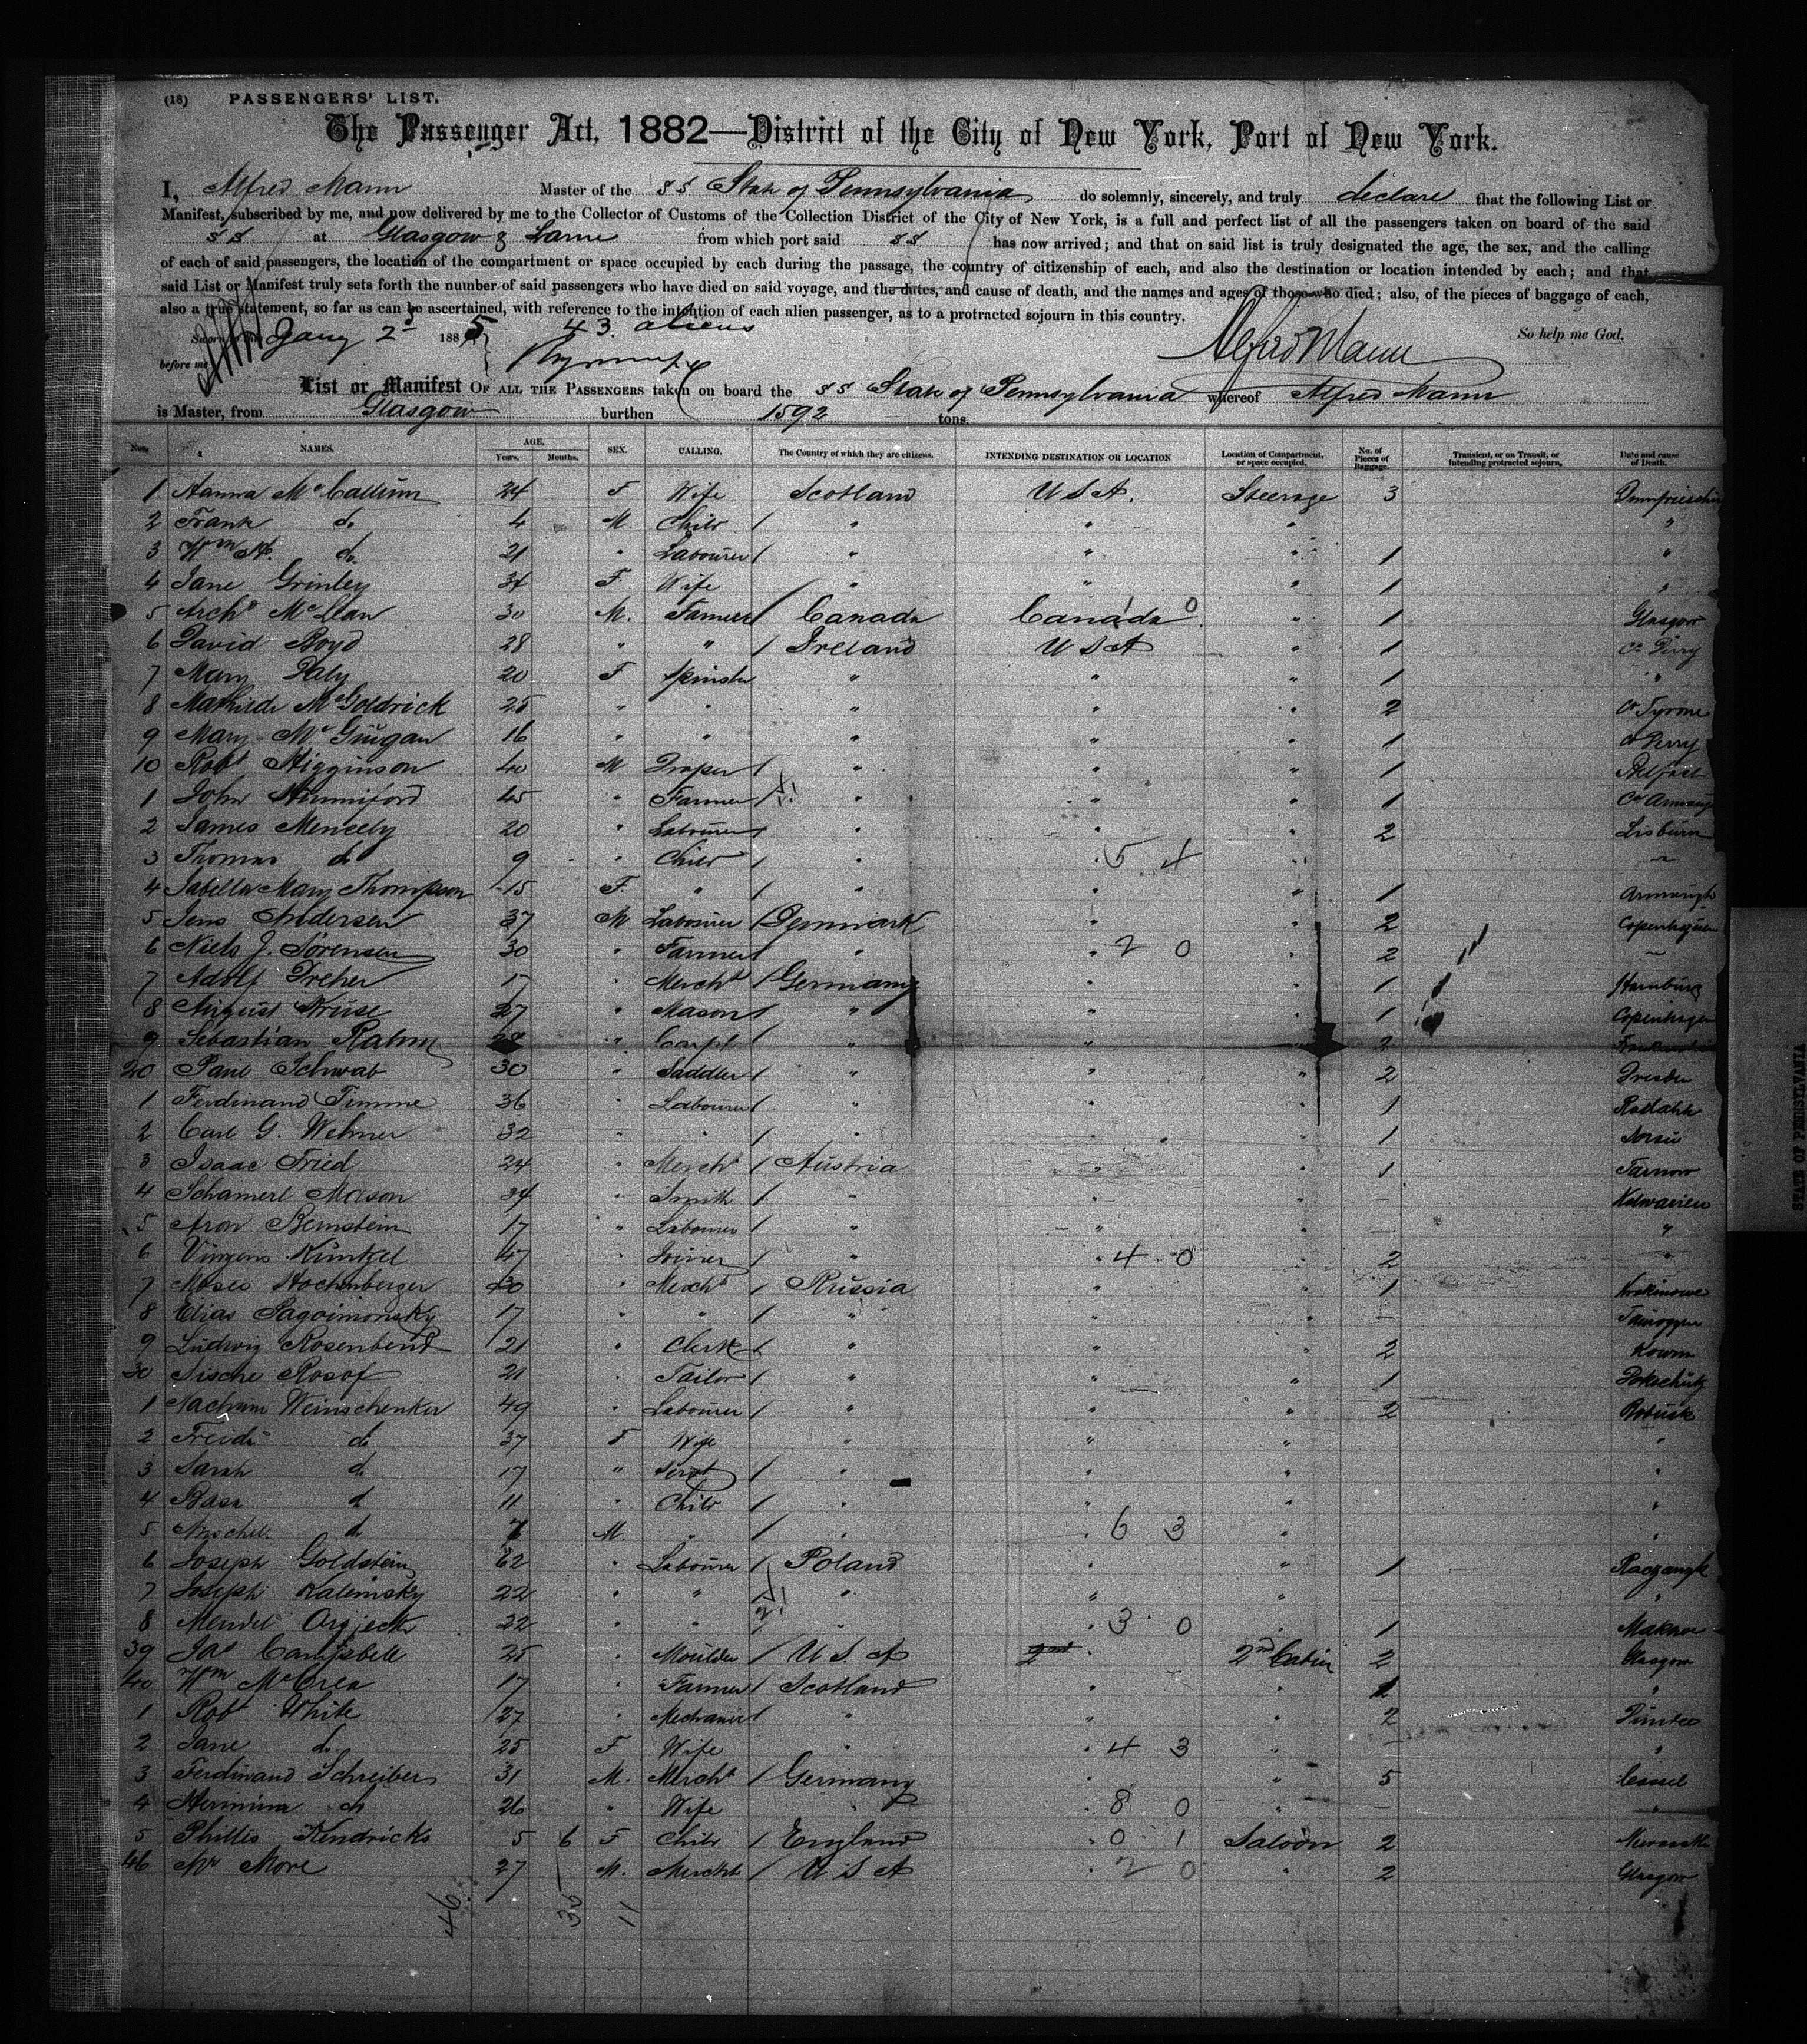 (18) PASSENGERS' LIST.
The Passenger Act, 1882—District of the City of New York, Port of New York.
I, Alfred Mann Master of the SS State of Pennsylvania do solemnly, sincerely, and truly declare that the following List or
Manifest, subscribed by me, and now delivered by me to the Collector of Customs of the Collection District of the City of New York, is a full and perfect list of all the passengers taken on board of the said
SS at Glasgow & Larne from which port said SS has now arrived; and that on said list is truly designated the age, the sex, and the calling
of each of said passengers, the location of the compartment or space occupied by each during the passage, the country of citizenship of each, and also the destination or location intended by each; and that
said List or Manifest truly sets forth the number of said passengers who have died on said voyage, and the dates, and cause of death, and the names and ages of those who died; also, of the pieces of baggage of each,
also a true statement, so far as can be ascertained, with reference to the intention of each alien passenger, as to a protracted sojourn in this country.
Sworn Jany 2d 1885 43 aliens Alfred Mann So help me God.
before me
List or Manifest OF ALL THE PASSENGERS taken on board the SS State of Pennsylvania whereof Alfred Mann
is Master, from Glasgow burthen 1592 tons.
Nos. NAMES. AGE. Years. Months. SEX. CALLING. The Country of which they are citizens. INTENDING DESTINATION OR LOCATION Location of Compartment, or space occupied. No. of Pieces of Baggage. Transient, or on Transit, or intending protracted sojourn. Date and cause of Death.
1 Hanna McCallum 24 F Wife Scotland U S A. Steerage 3 Dumfriesshire
2 Frank do 4 M. Child / " " " "
3 Wm H. do 21 " Labourer / " " " 1 "
4 Jane Grinley 34 F. Wife " " " 1 "
5 Archd McLean 30 M. Farmer / Canada Canada 0 " 1 Glasgow
6 David Boyd 28 " " / Ireland U S A " 1 Co Derry
7 Mary Daly 20 F Spinster " " " 1 "
8 Mathilde McGoldrick 25 " " " " " 2 Co Tyrone
9 Mary McGuigan 16 " " " " " 1 Co Derry
10 Robt Higginson 40 M Draper / " " " 1 Belfast
1 John Hunniford 45 " Farmer / " " " 1 Co Armagh
2 James Meneely 20 " Labourer / " " " 2 Lisburn
3 Thomas do 9 " Child / " " 5 4 "
4 Isabella Mary Thompson 15 F. " / " " " 1 Armagh
5 Jens Andersen 37 M Labourer / Denmark " " 2 Copenhagen
6 Niels J. Sørensen 30 " Farmer / " " 2 0 " 2
7 Adolf Dreher 17 " Mercht / Germany " " 1 Hamburg
8 August Kruse 27 " Mason / " " " 1 Copenhagen
9 Sebastian Rahm 28 " Carpt / " " " 2
20 Paul Schwab 30 " Saddler / " " " 2 Dresden
1 Ferdinand Timme 36 " Labourer / " " " 1
2 Carl G. Wehner 32 " " / " " " 1
3 Isaac Fried 24 " Mercht / Austria " " 1 Tarnow
4 Schamerl Mason 34 " Smith / " " " – Kalwarien
5 Aron Bernstein 17 " Labourer / " " " – "
6 Vinzens Kuntzel 47 " Joiner / " " 4 0 " 2 "
7 Moses Hochenberger 30 " Mercht / Russia " " 1
8 Elias Sagoimonsky 17 " " / " " " –
9 Ludwig Rosenbend 21 " Clerk / " " " 2 Kowno
30 Sische Rosof 21 " Tailor / " " " 1
1 Nachum Weinschenker 49 " Labourer / " " " 2
2 Freide do 37 F Wife " " " "
3 Sarah do 17 " Servt / " " " "
4 Basa do 11 " Child / " " " "
5 do 7 M. " / " " 6 3 " "
6 Joseph Goldstein 62 " Labourer / Poland " " 1
7 Joseph Kalinsky 22 " " " " " "
8 Mendel 22 " " " " 3 0 " 1
39 Jas Campbell 25 " Moulder / U S A " 2nd Cabin 2 Glasgow
40 Wm McCrea 17 " Farmer / Scotland " " 1 "
1 Robt White 27 " Mechanic / " " " 2 Dundee
2 Jane do 25 F Wife " " 4 3 " – "
3 Ferdinand Schreiber 31 M. Mercht / Germany " " 5 Cassel
4 Hermina do 26 " Wife " " 8 0 " – "
5 Phillis Kendricks 5 6 F Child / England " 0 1 Saloon 2
46 Mr More 27 M. Mercht / U S A " 2 0 " 2 Glasgow
46 35 11
STATE OF PENNSYLVANIA